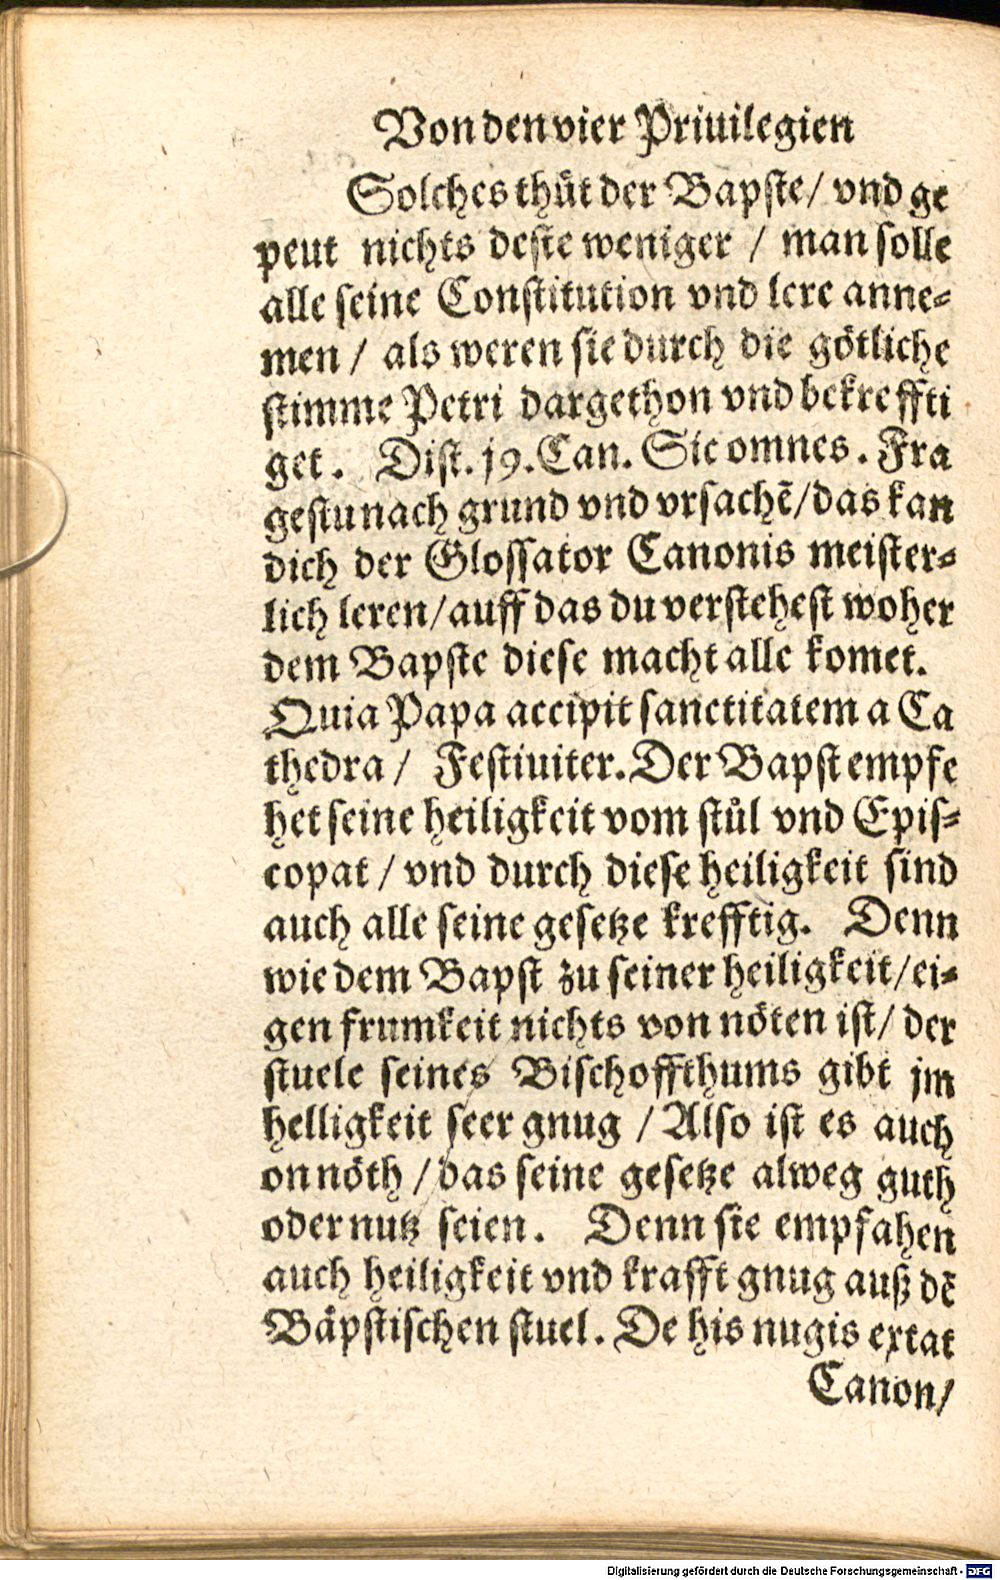 Von den vier Priuilegien
Solches thůt der Bapste/ vnd ge
peut nichts deste weniger / man solle
alle seine Constitution vnd lere anne⸗
men / als weren sie durch die götliche
stimme Petri dargethon vnd bekreffti
get. Dist. j9. Can. Sic omnes. Fra
gestu nach grund vnd vrsachẽ/das kan
dich der Glossator Canonis meister⸗
lich leren/auff das du verstehest woher
dem Bapste diese macht alle komet.
Quia Papa accipit sanctitatem a Ca
thedra / Festiuiter. Der Bapst empfe
het seine heiligkeit vom stůl vnd Epis⸗
copat / vnd durch diese heiligkeit sind
auch alle seine gesetze krefftig. Denn
wie dem Bapst zu seiner heiligkeit/ei⸗
gen frumkeit nichts von nöten ist/ der
stuele seines Bischoffthums gibt jm
helligkeit seer gnug / Also ist es auch
on nöth / das seine gesetze alweg guth
oder nutz seien. Denn sie empfahen
auch heiligkeit vnd krafft gnug auß dẽ
Bäpstischen stuel. De his nugis extat
Canon/
Digitalisierung gefördert durch die Deutsche Forschungsgemeinschaft - DFG